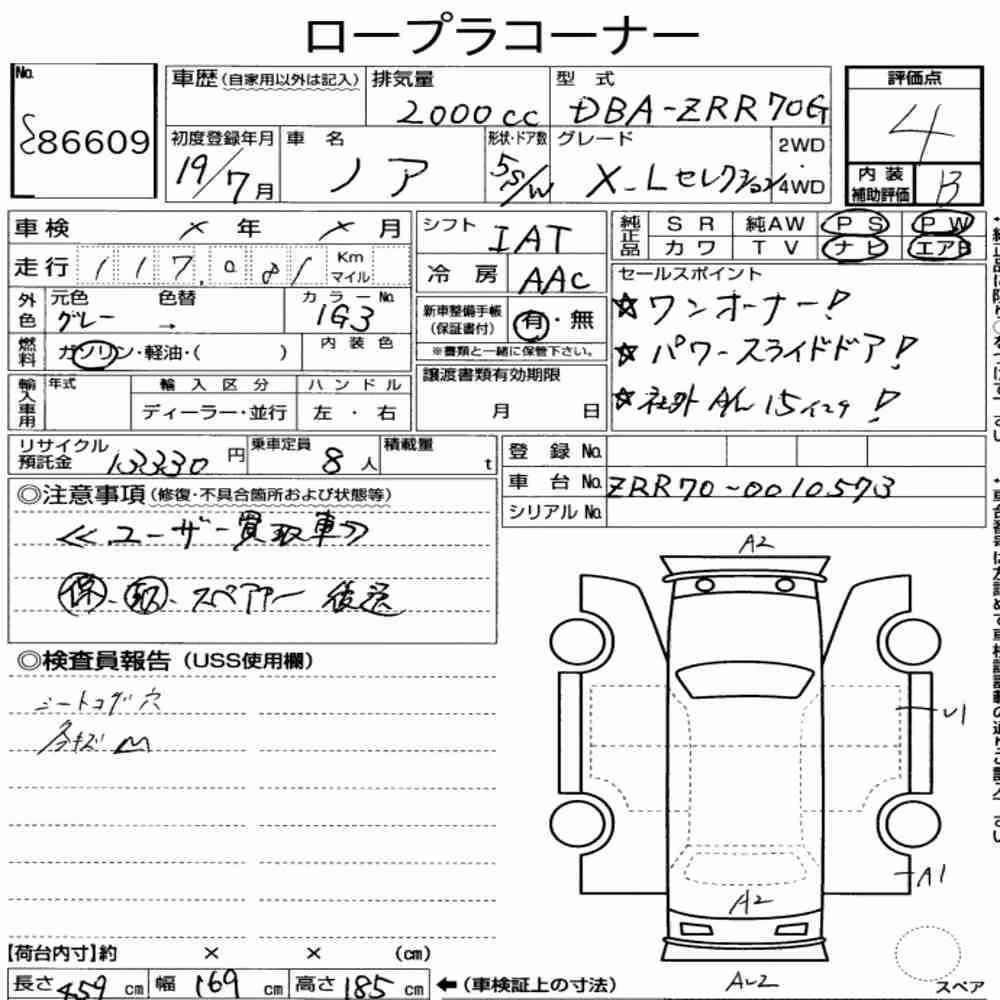 ロープラコーナー
No.
86609
車歴(自家用以外は記入)
排気量
2000cc
型 式
DBA-ZRR70G
評価点
4
初度登録年月
19/7月
車 名
ノア
形状・ドア数
5S/W
グレード
X-Lセレクション
2WD
・
4WD
内 装
補助評価
B
車検 × 年 × 月
走行 117,081 Km マイル
外色
元色
グレー
色替
→
カラーNo.
1G3
燃料
ガソリン・軽油・( )
内装色
輸入車用
年式
輸入区分
ディーラー・並行
ハンドル
左・右
シフト
IAT
冷房
AAC
新車整備手帳
(保証書付)
有・無
※書類と一緒に保管下さい。
譲渡書類有効期限
月 日
純正品
SR 純AW PS PW
カワ TV ナビ エアB
セールスポイント
☆ワンオーナー!
☆パワースライドドア!
☆社外AW 15インチ!
リサイクル
預託金
13330円
乗車定員
8人
積載量
t
登録No.
車台No. ZRR70-0010573
シリアルNo.
◎注意事項(修復・不具合箇所および状態等)
≪ユーザー買取車≫
保・取・スペアキー 後送
◎検査員報告(USS使用欄)
シートコゲ穴
各キズ
A2
U1
A1
A2
スペア
【荷台内寸】約 × × (cm)
長さ 459 cm 幅 169 cm 高さ 185 cm ←(車検証上の寸法)